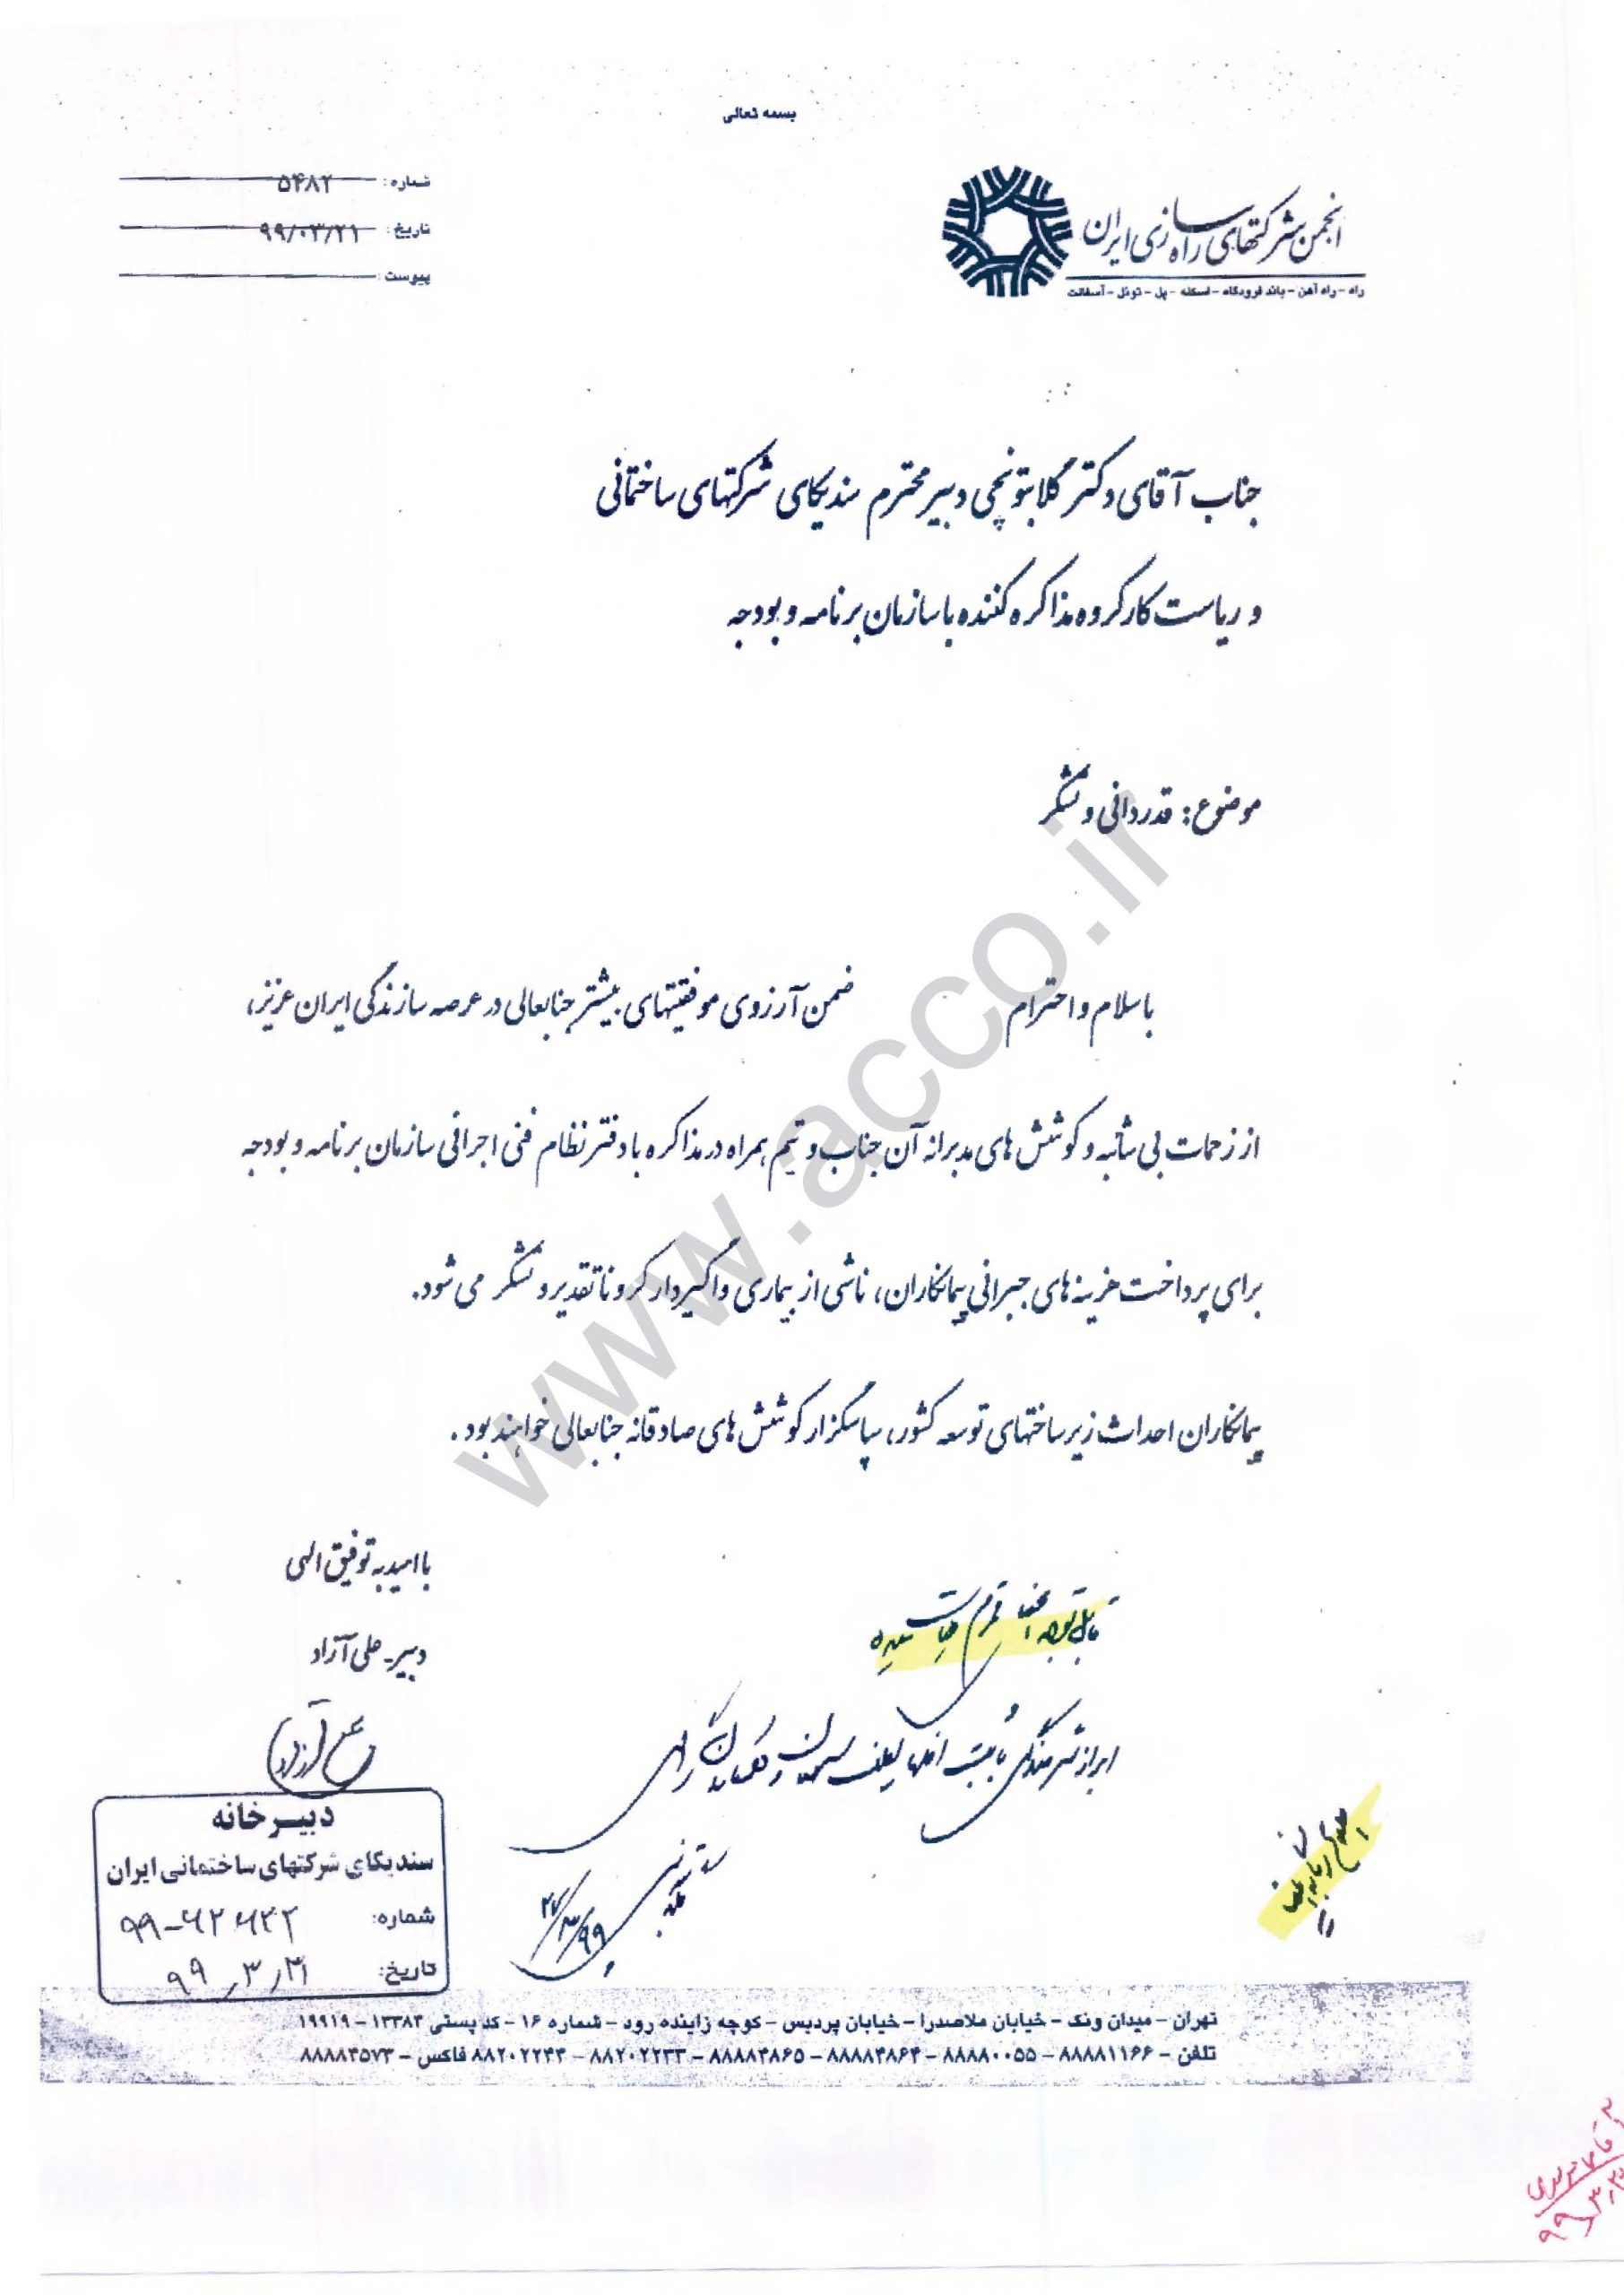 بسمه تعالی
انجمن شرکتهای راه سازی ایران
راه - راه آهن - باند فرودگاه - اسکله - پل - تونل - آسفالت
شماره: ۵۴۸۲
تاریخ: ۹۹/۰۳/۲۱
پیوست:
جناب آقای دکتر گلابتونچی دبیر محترم سندیکای شرکتهای ساختمانی
و ریاست کارگروه مذاکره کننده با سازمان برنامه و بودجه
موضوع: قدردانی و تشکر
با سلام و احترام ضمن آرزوی موفقیتهای بیشتر جنابعالی در عرصه سازندگی ایران عزیز،
از زحمات بی شائبه و کوشش های مدبرانه آن جناب و تیم همراه در مذاکره با دفتر نظام فنی اجرائی سازمان برنامه و بودجه
برای پرداخت هزینه های جبرانی پیمانکاران، ناشی از بیماری واگیردار کرونا تقدیر و تشکر می شود.
پیمانکاران احداث زیرساختهای توسعه کشور، سپاسگزار کوشش های صادقانه جنابعالی خواهند بود.
با امید به توفیق الهی
دبیر - علی آزاد
ابراز شرمندگی بابت
۹۹/۳/۲۷
دبیرخانه
سندیکای شرکتهای ساختمانی ایران
شماره:
تاریخ: ۹۹,۳,۳۱
تهران - میدان ونک - خیابان ملاصدرا - خیابان پردیس - کوچه زاینده رود - شماره ۱۶ - کد پستی ۱۳۳۸۳ - ۱۹۹۱۹
تلفن - ۸۸۸۸۱۱۶۶ - ۸۸۸۸۰۰۵۵ - ۸۸۸۸۳۸۶۴ - ۸۸۸۸۳۸۶۵ - ۸۸۲۰۲۲۳۳ - ۸۸۲۰۲۲۴۴ فاکس - ۸۸۸۸۳۵۷۳
www.acco.ir